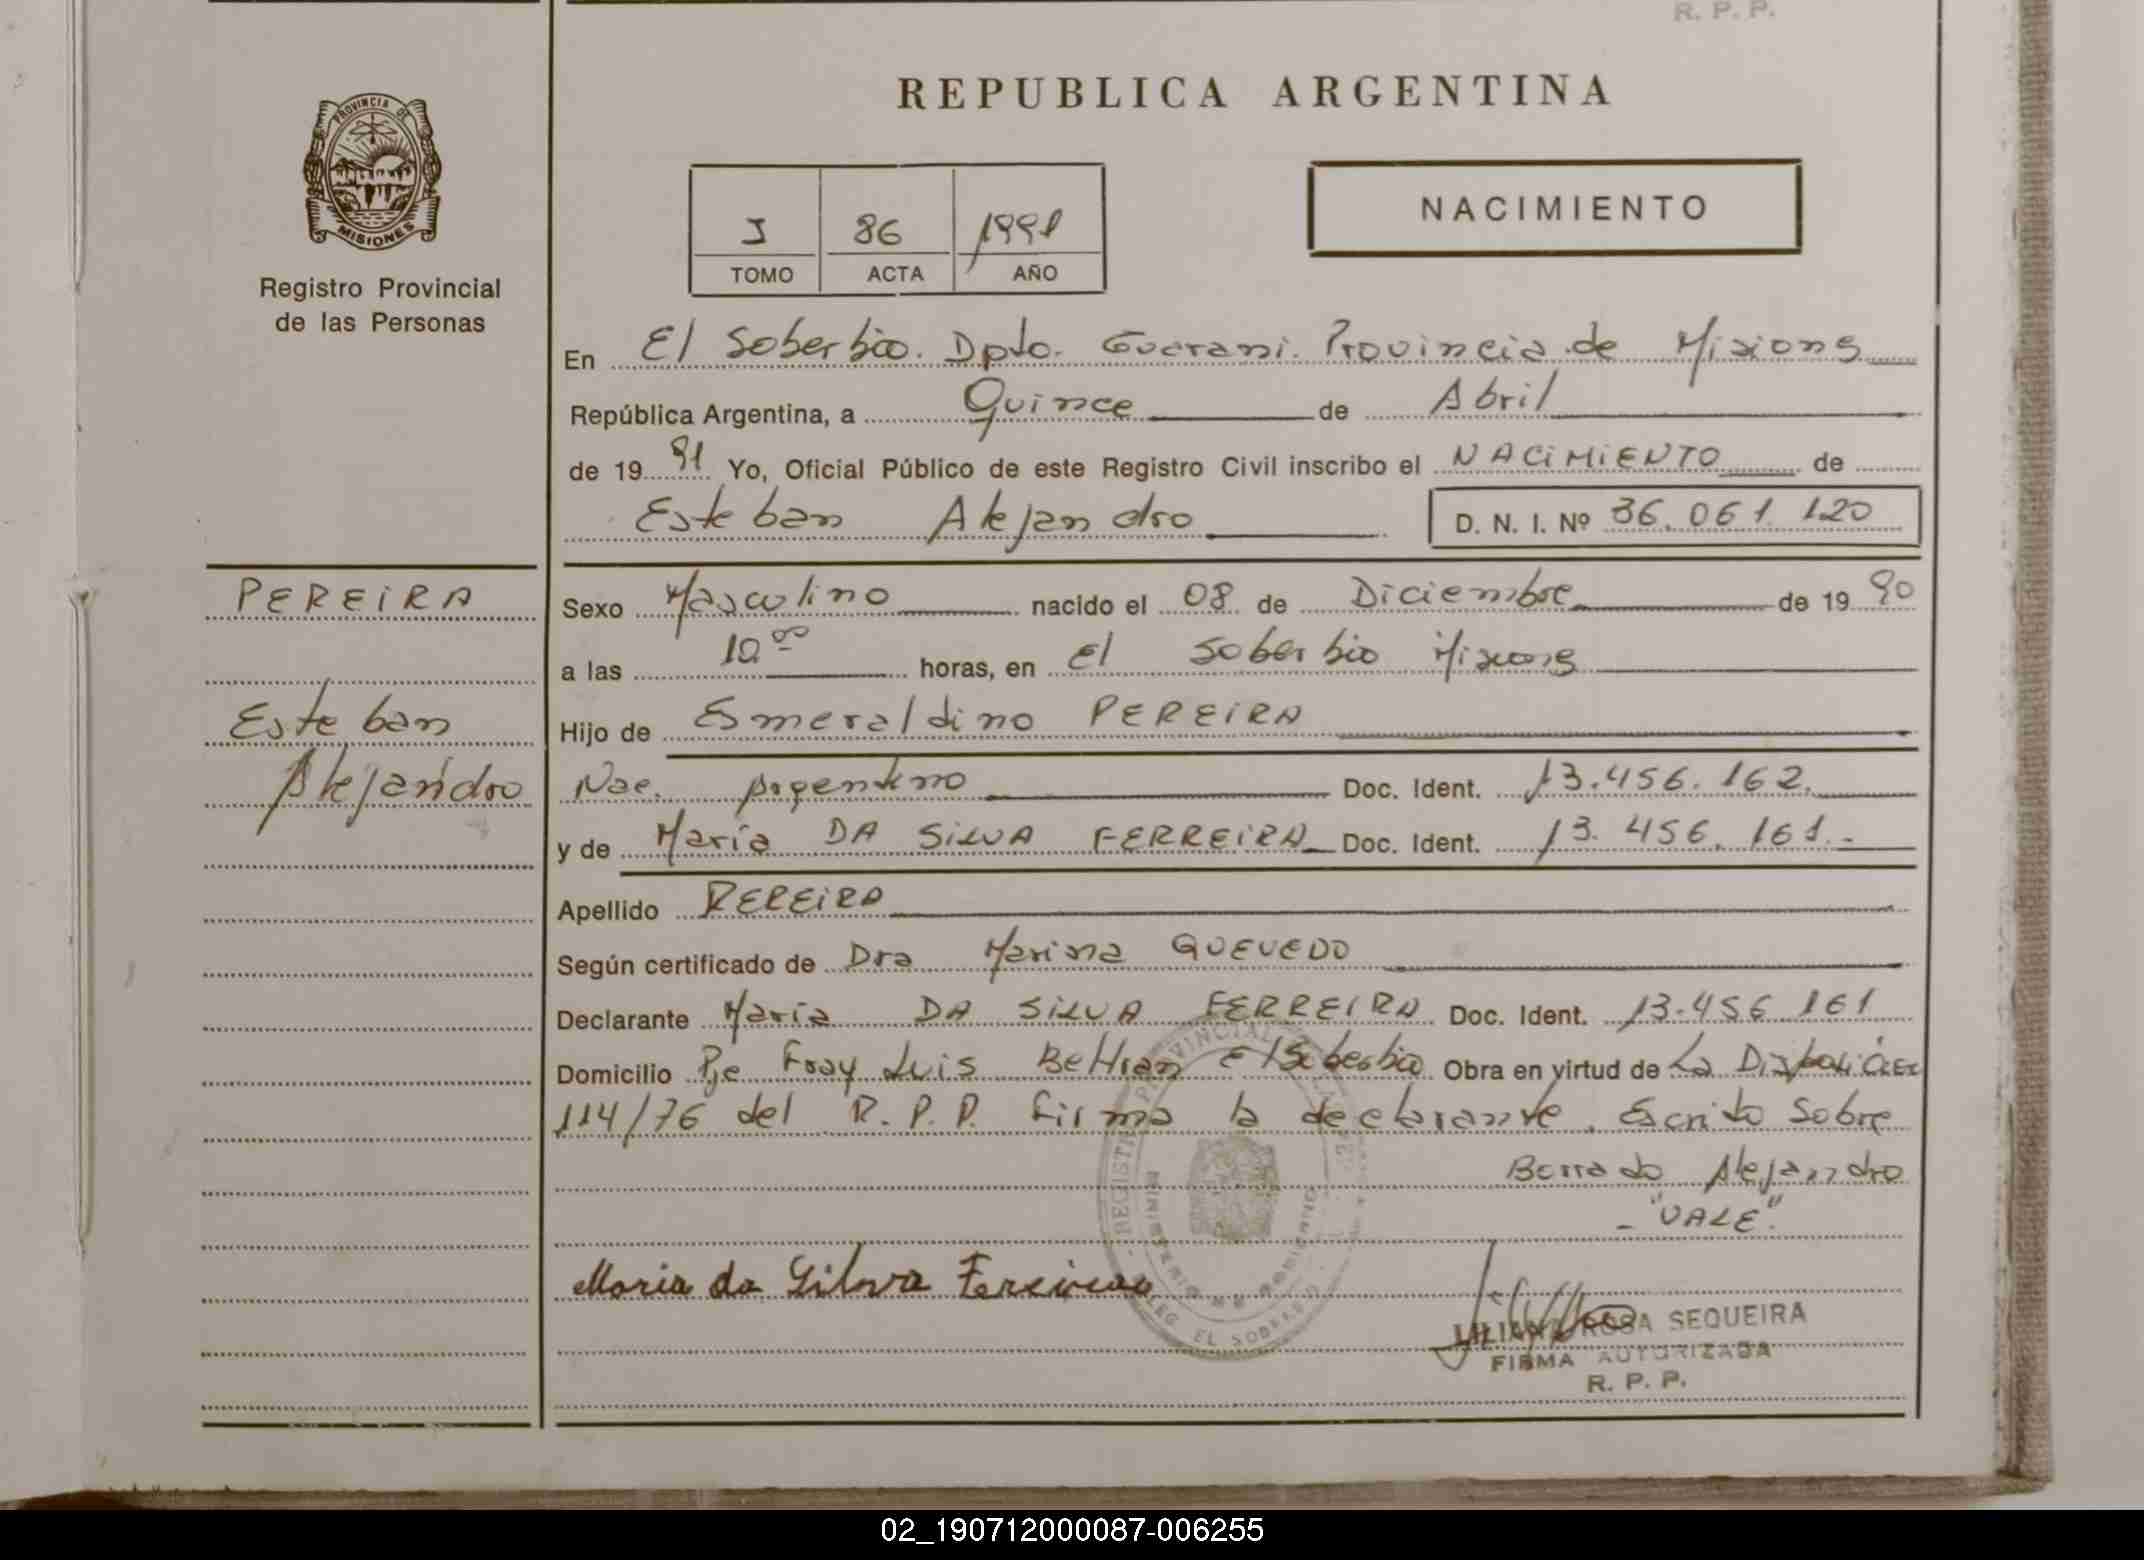 R. P. P.
REPUBLICA ARGENTINA
PROVINCIA DE
MISIONES
Registro Provincial
de las Personas
I 86 1991
TOMO ACTA AÑO
NACIMIENTO
En El Soberbio. Dpto. Guarani. Provincia de Misiones
República Argentina, a Quince de Abril
de 19 91 Yo, Oficial Público de este Registro Civil inscribo el NACIMIENTO de
Esteban Alejandro D. N. I. Nº 36.061.120
PEREIRA
Esteban
Alejandro
Sexo Masculino nacido el 08 de Diciembre de 19 90
a las 10 00 horas, en El Soberbio Misiones
Hijo de Esmeraldino PEREIRA
Nac. Argentino Doc. Ident. 13.456.162.
y de Maria DA SILVA FERREIRA Doc. Ident. 13.456.161.-
Apellido PEREIRA
Según certificado de Dra Marina QUEVEDO
Declarante Maria DA SILVA FERREIRA Doc. Ident. 13.456 161
Domicilio Pje Fray Luis Beltran El Soberbio Obra en virtud de La
114/76 del R.P.P. Firma la declarante. Escrito Sobre
Borrado Alejandro
- "VALE".
Maria da Silva Ferreira
REGISTRO PROVINCIAL
MINISTERIO DE GOBIERNO
DELEG EL SOBERBIO
LILIANA ROSA SEQUEIRA
FIRMA AUTORIZADA
R. P. P.
02_190712000087-006255